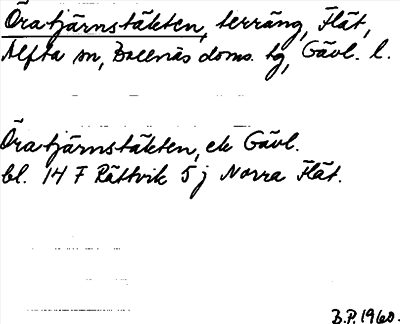 Öratjärnstäkten, terräng, Flät,
Alfta sn, Bollnäs doms. tg, Gävl. l.
Öratjärnstäkten, ek Gävl.
bl. 14 F Rättvik 5 j Norra Flät.
B.P. 1960.